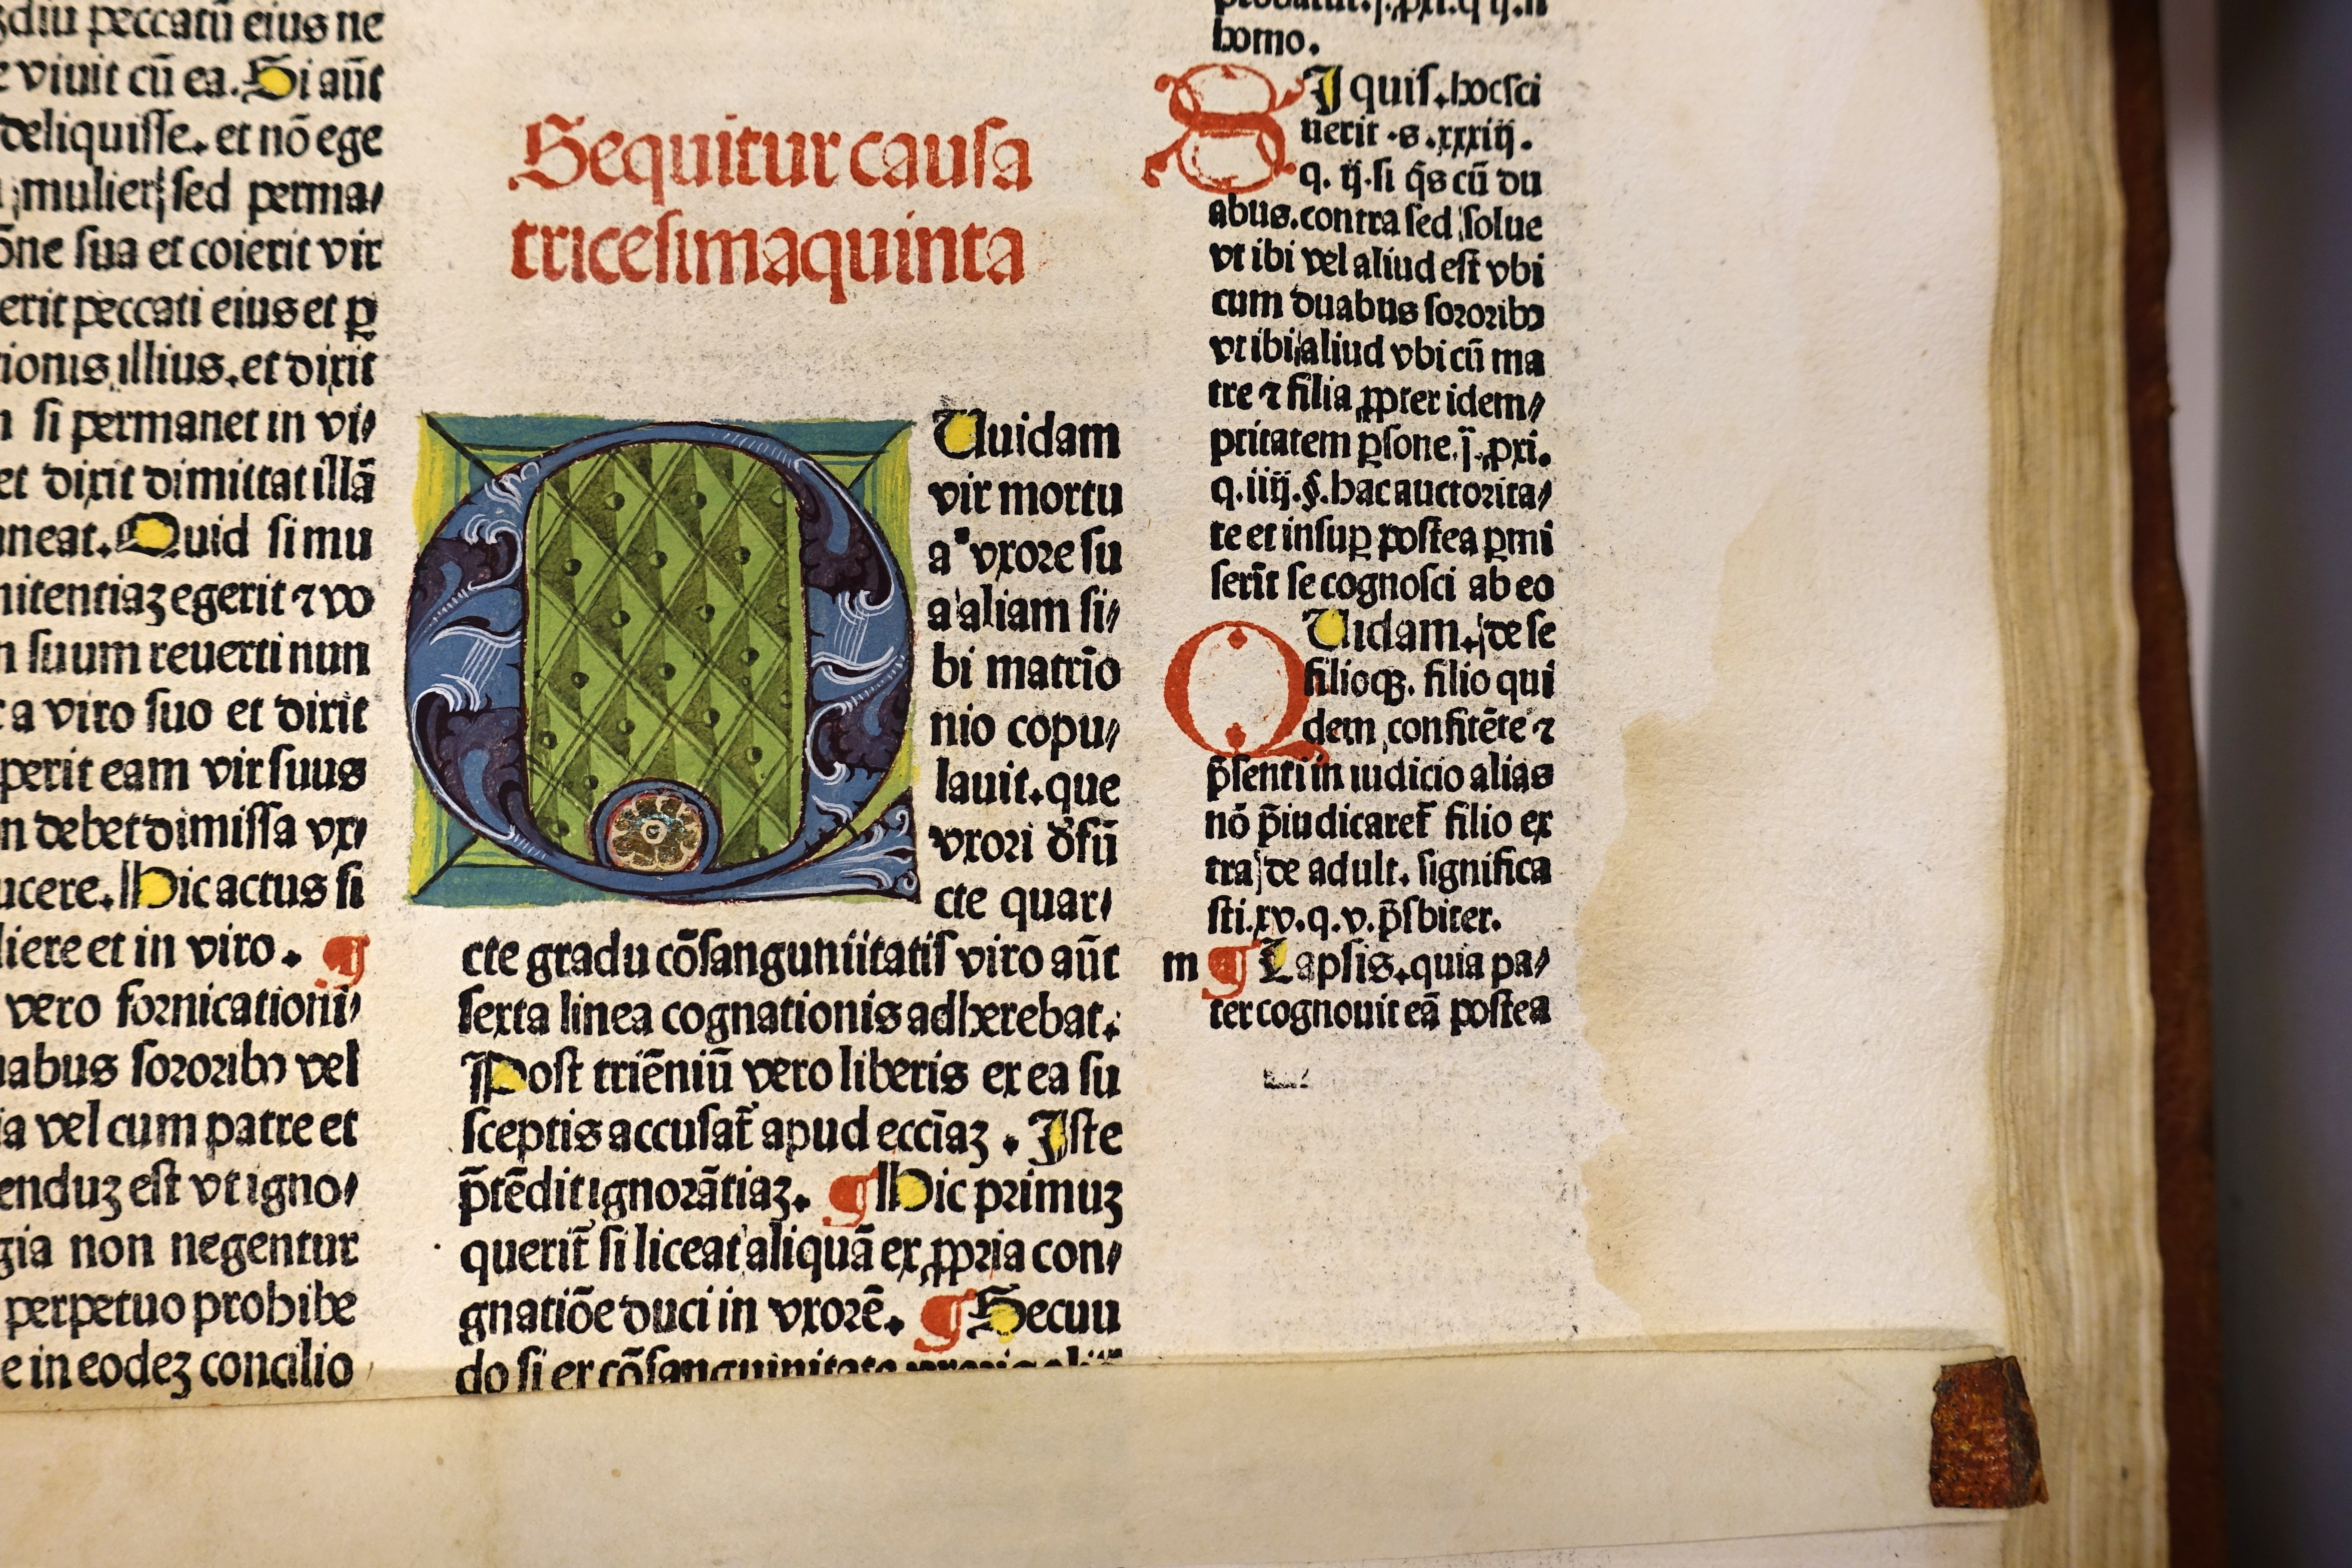 diu peccatū eius ne
viuit cū ea. Si aūt
deliquisse. et nō ege
mulier sed perma/
ōne sua et coierit vir
erit peccati eius et ꝑ
ionis illius. et dixit
si permanet in vi/
et dixit dimittat illā
neat. Quid si mu
nitentiaꝫ egerit ⁊ vo
suum reuerti nun
a viro suo et dixit
perit eam vir suus
n debet dimissa vx/
ucere. Hic actus si
liere et in viro. ¶
vero fornicationi/
abus sororibꝰ vel
ia vel cum patre et
enduꝫ est vt igno/
gia non negentur
perpetuo prohibe
e in eodeꝫ concilio
Sequitur causa
tricesimaquinta
Quidam
vir mortu
a vxore su
a aliam si/
bi matrīo
nio copu/
lauit. que
vxori d̄fū
cte quar/
cte gradu cōsanguniitatis viro aūt
sexta linea cognationis adherebat.
Post triēniū vero liberis ex ea su
sceptis accusat̄ apud eccīaꝫ. Iste
p̄tēdit ignorātiaꝫ. ¶ Hic primuꝫ
querit̄ si liceat aliquā ex ꝓpria con/
gnatiōe duci in vxorē. ¶ Secuu
do si ex cōsanguinitate
homo.
SI quis. hocsci
uerit .s. xxxiij.
q. ij. si q̄s cū du
abus. contra sed solue
vt ibi vel aliud est vbi
cum duabus sororibꝰ
vt ibi aliud vbi cū ma
tre ⁊ filia ꝓpter idem/
ptitatem ꝑsone. j. ꝓxi.
q. iiij. §. hac auctorita/
te et insuꝑ postea ꝑmi
serit se cognosci ab eo
QUidam. de se
filioqꝫ. filio qui
dem confitēte ⁊
p̄senti in iudicio alias
nō p̄iudicaret̄ filio ex
tra de adult. significa
sti. xv. q. v. p̄sbiter.
m ¶ Lapsis. quia pa/
ter cognouit eā postea